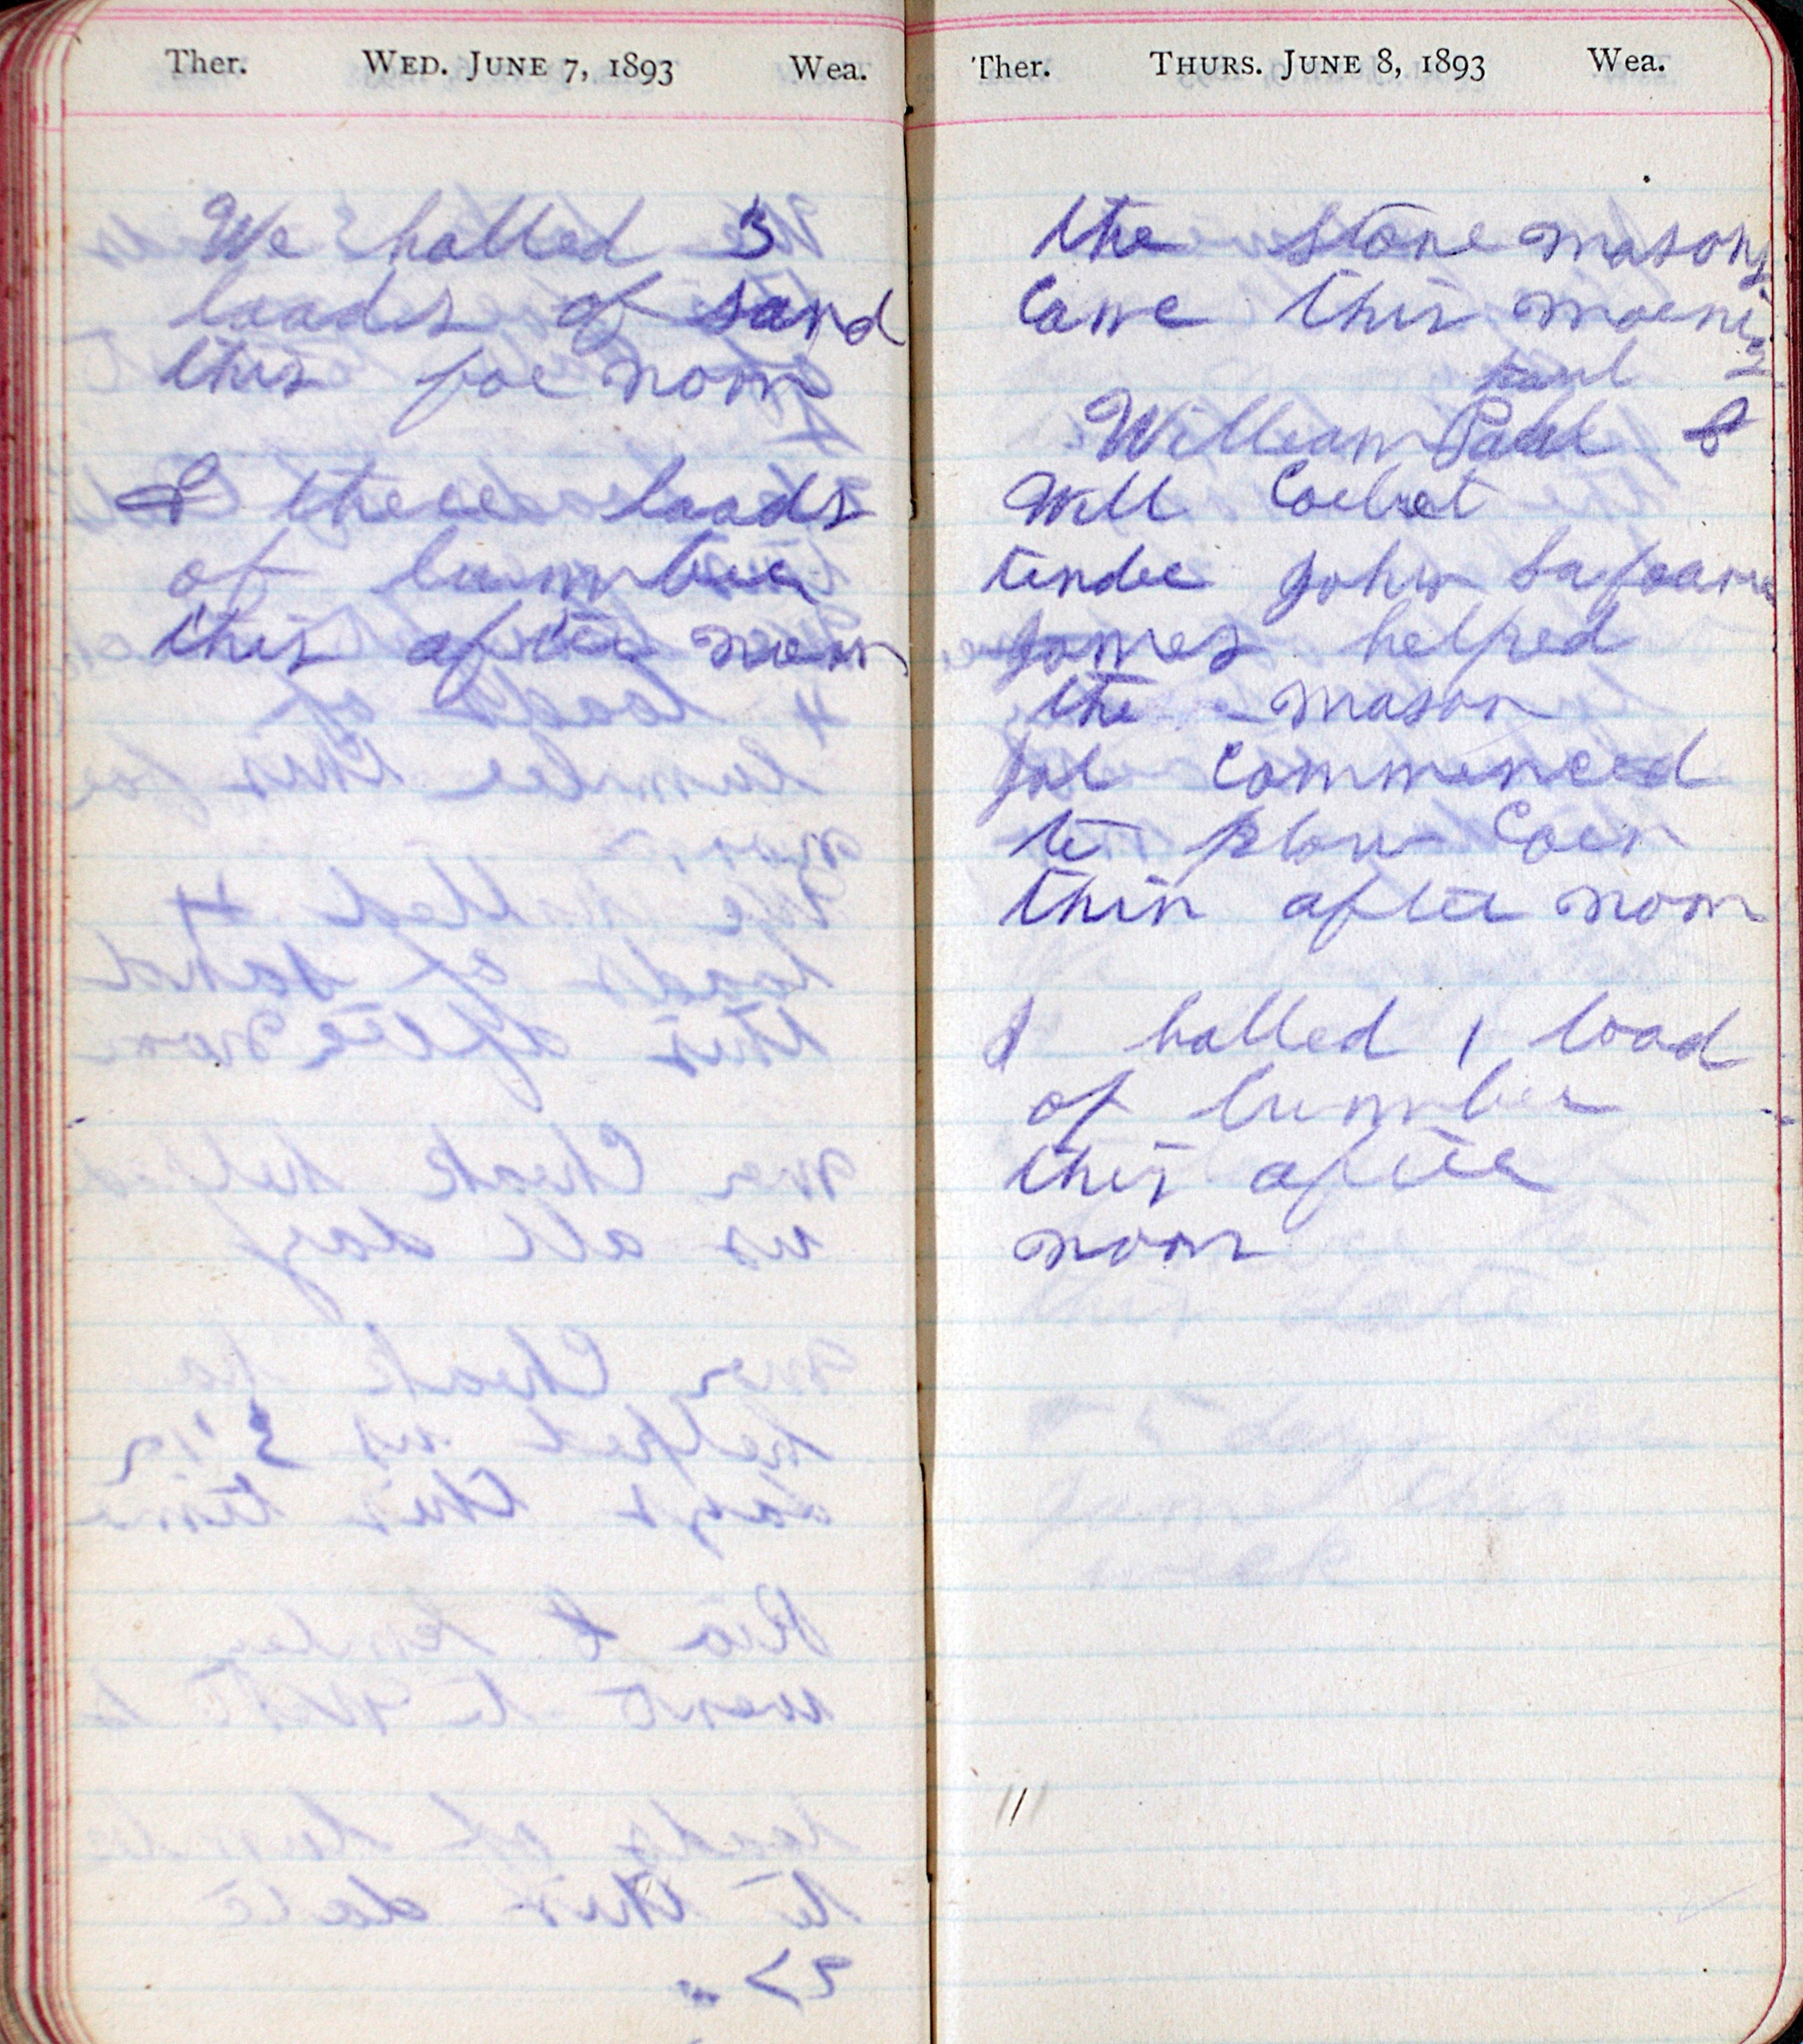 Ther. WED. JUNE 7, 1893 Wea.
We halled 3
loads of sand
this for noon
& three loads
of lumber
this after noon
Ther. THURS. JUNE 8, 1893 Wea.
the stone masons
Came this morning
paul
William Paul &
Will Corbet
tender John
James helped
the mason
Jol commenced
to plow Corn
this after noon
I halled 1 load
of lumber
this after
noon